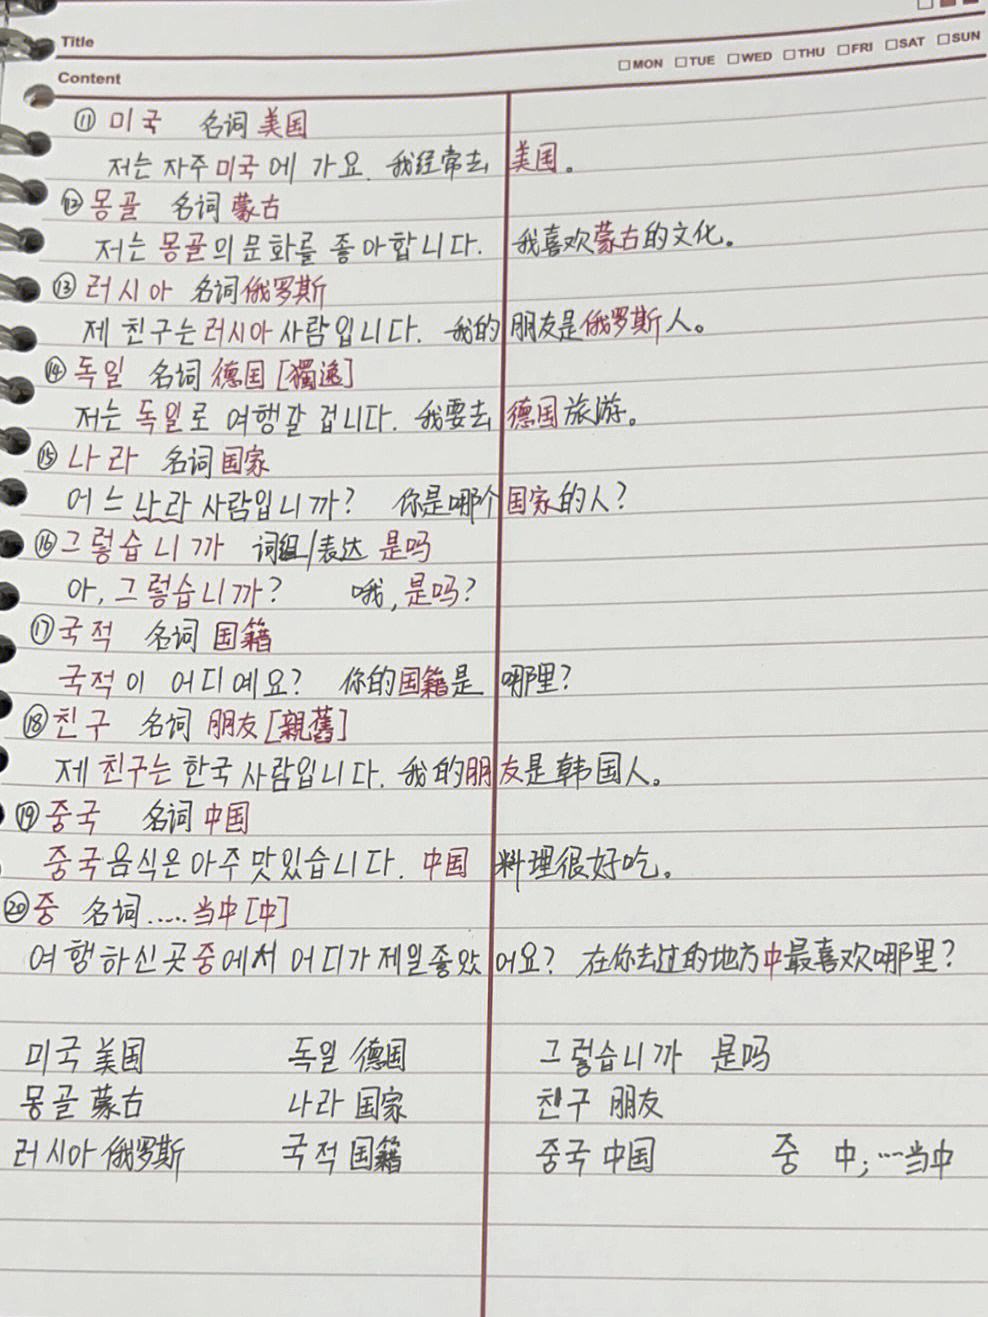 Title
□MON □TUE □WED □THU □FRI □SAT □SUN
Content
⑪ 미국 名词 美国
저는 자주 미국에 가요. 我经常去 美国。
⑫ 몽골 名词 蒙古
저는 몽골의 문화를 좋아합니다. 我喜欢蒙古的文化。
⑬ 러시아 名词 俄罗斯
제 친구는 러시아 사람입니다. 我的 朋友是俄罗斯人。
⑭ 독일 名词 德国 [獨逸]
저는 독일로 여행갈 겁니다. 我要去 德国旅游。
⑮ 나라 名词 国家
어느 나라 사람입니까? 你是哪个国家的人?
⑯ 그렇습니까 词组/表达 是吗
아, 그렇습니까? 哦, 是吗?
⑰ 국적 名词 国籍
국적이 어디예요? 你的国籍是 哪里?
⑱ 친구 名词 朋友 [親舊]
제 친구는 한국 사람입니다. 我的朋友是韩国人。
⑲ 중국 名词 中国
중국음식은 아주 맛있습니다. 中国 料理很好吃。
⑳ 중 名词 ..... 当中 [中]
여행하신곳중에서 어디가 제일좋았어요? 在你去过的地方中最喜欢哪里?
미국 美国 독일 德国 그렇습니까 是吗
몽골 蒙古 나라 国家 친구 朋友
러시아 俄罗斯 국적 国籍 중국 中国 중 中; …当中